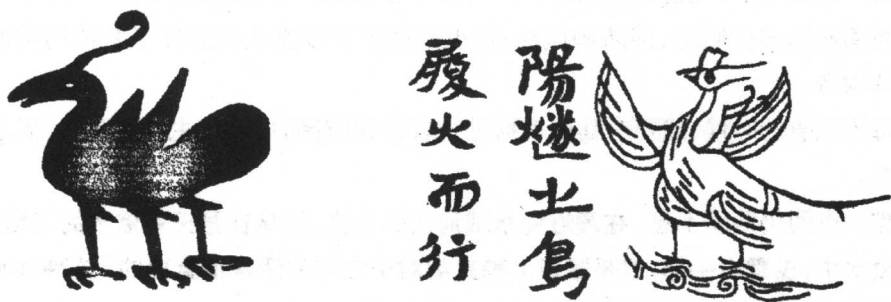 陽燧之鳥
履火而行